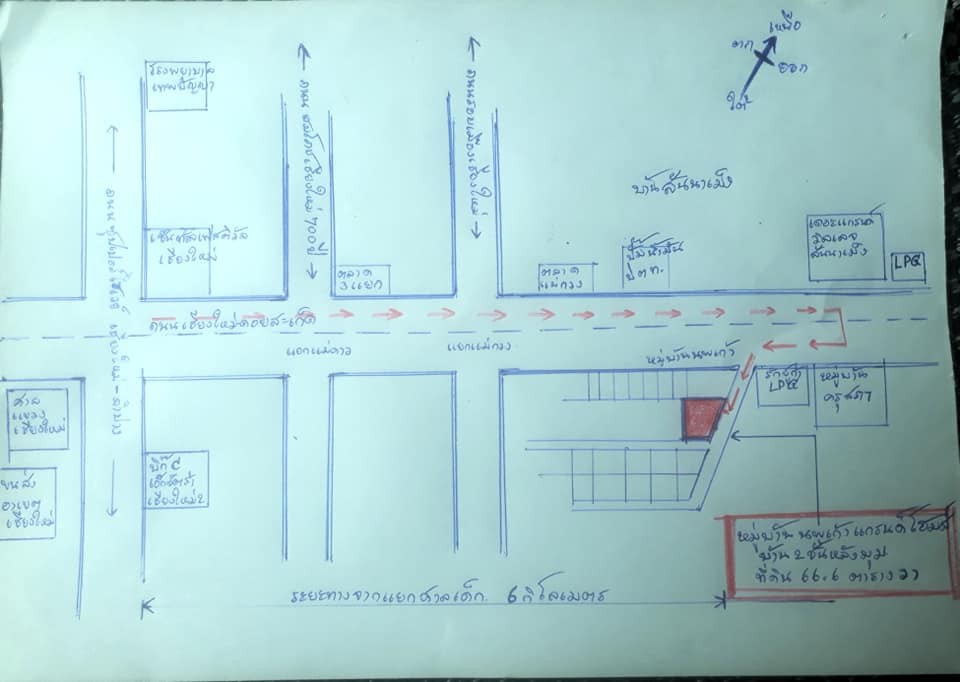 เหนือ
ตก
ออก
ใต้
โรงพยาบาล
เทพปัญญา
ถนน สมโภชเชียงใหม่ 700 ปี
ถนนรอบเมืองเชียงใหม่
บ้านสันนาเม็ง
เซ็นทัลเฟสติวัล
เชียงใหม่
ตลาด
3 แยก
ตลาด
แม่กวง
ปั๊มน้ำมัน
ปตท.
เดอะแกรนด์
วิลเลจ
สันนาเม็ง
LPG
ถนนเชียงใหม่ดอยสะเก็ด
ถนน ซุปเปอร์ไฮเวย์ เชียงใหม่-ลำปาง
แยกแม่คาว
แยกแม่กวง
หมู่บ้านนพเก้า
ศาล
แขวง
เชียงใหม่
LPG
หมู่บ้าน
คุรุสภา
ขนส่ง
อาเขต
เชียงใหม่
บิ๊กซี
เอ็กซ์ตร้า
เชียงใหม่ 2
หมู่บ้าน นพเก้า แกรนด์ โฮมส์
บ้าน 2 ชั้นหลังมุม
ที่ดิน 66.6 ตารางวา
ระยะทางจากแยกศาลเด็ก. 6 กิโลเมตร